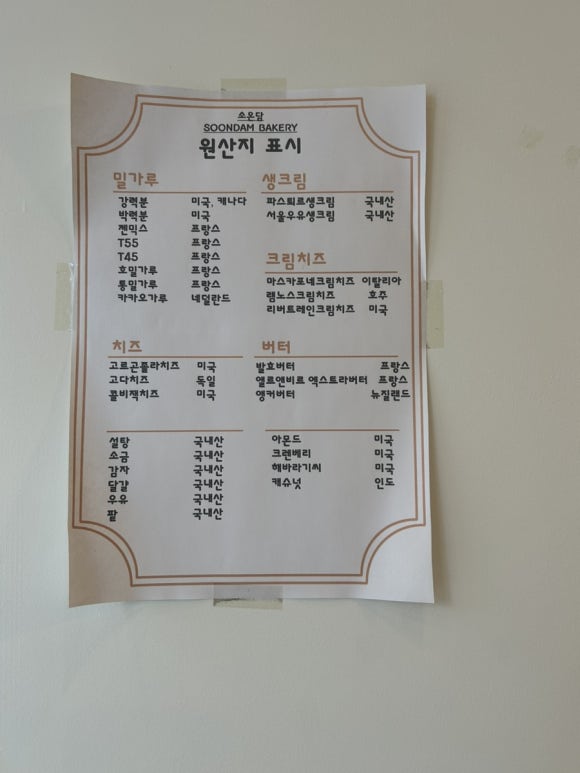 소온담
SOONDAM BAKERY
원산지 표시
밀가루
강력분 미국, 캐나다
박력분 미국
젠믹스 프랑스
T55 프랑스
T45 프랑스
호밀가루 프랑스
통밀가루 프랑스
카카오가루 네덜란드
생크림
파스퇴르생크림 국내산
서울우유생크림 국내산
크림치즈
마스카포네크림치즈 이탈리아
렘노스크림치즈 호주
리버트레인크림치즈 미국
치즈
고르곤졸라치즈 미국
고다치즈 독일
콜비잭치즈 미국
버터
발효버터 프랑스
엘르앤비르 엑스트라버터 프랑스
앵커버터 뉴질랜드
설탕 국내산
소금 국내산
감자 국내산
달걀 국내산
우유 국내산
팥 국내산
아몬드 미국
크렌베리 미국
해바라기씨 미국
캐슈넛 인도